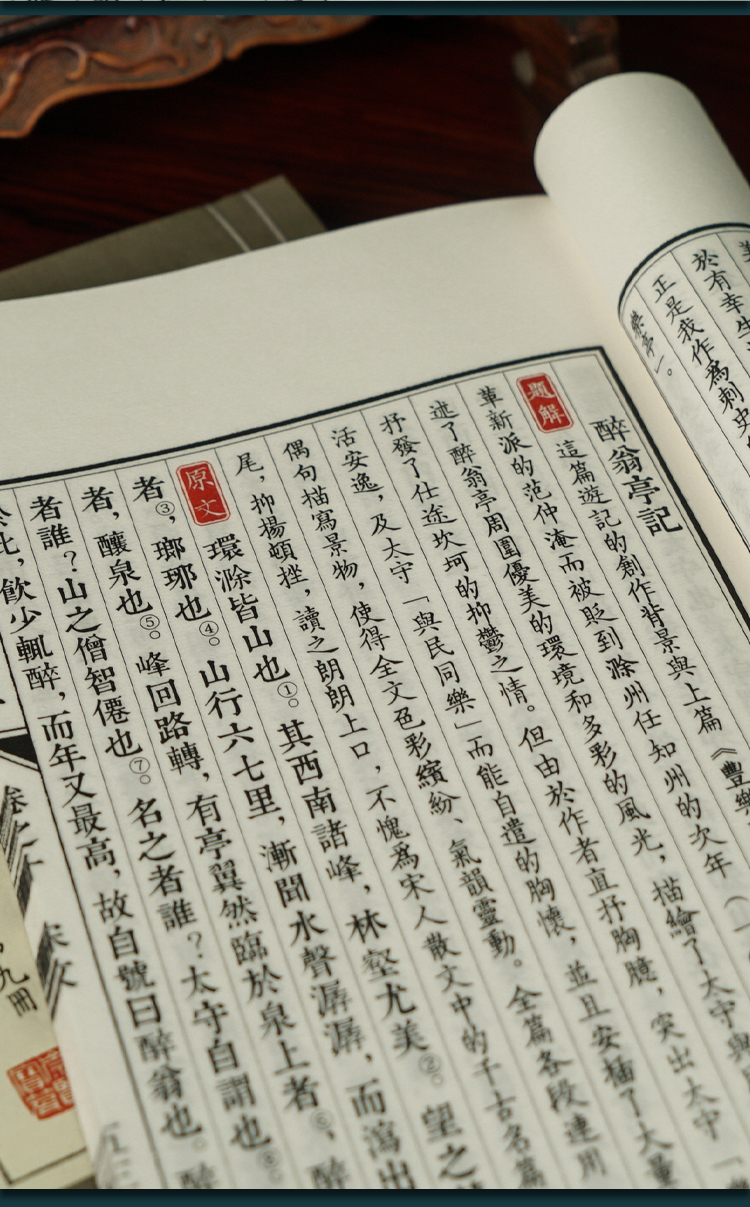 於有幸生
正是我作爲刺史
醉翁亭記
題解
這篇遊記的創作背景與上篇《豐樂
革新派的范仲淹而被貶到滁州任知州的次年（一
述了醉翁亭周圍優美的環境和多彩的風光，描繪了太守與
抒發了仕途坎坷的抑鬱之情。但由於作者直抒胸臆，突出太守「
活安逸，及太守「與民同樂」而能自遣的胸懷，並且安插了大量
偶句描寫景物，使得全文色彩繽紛、氣韻靈動。全篇各段連用
尾，抑揚頓挫，讀之朗朗上口，不愧爲宋人散文中的千古名篇
原文
環滁皆山也①。其西南諸峰，林壑尤美②。望之
者③，瑯琊也④。山行六七里，漸聞水聲潺潺，而瀉出
者，釀泉也⑤。峰回路轉，有亭翼然臨於泉上者⑥，醉
者誰？山之僧智僊也⑦。名之者誰？太守自謂也⑧。
於此，飲少輒醉，而年又最高，故自號曰醉翁也。醉
九冊